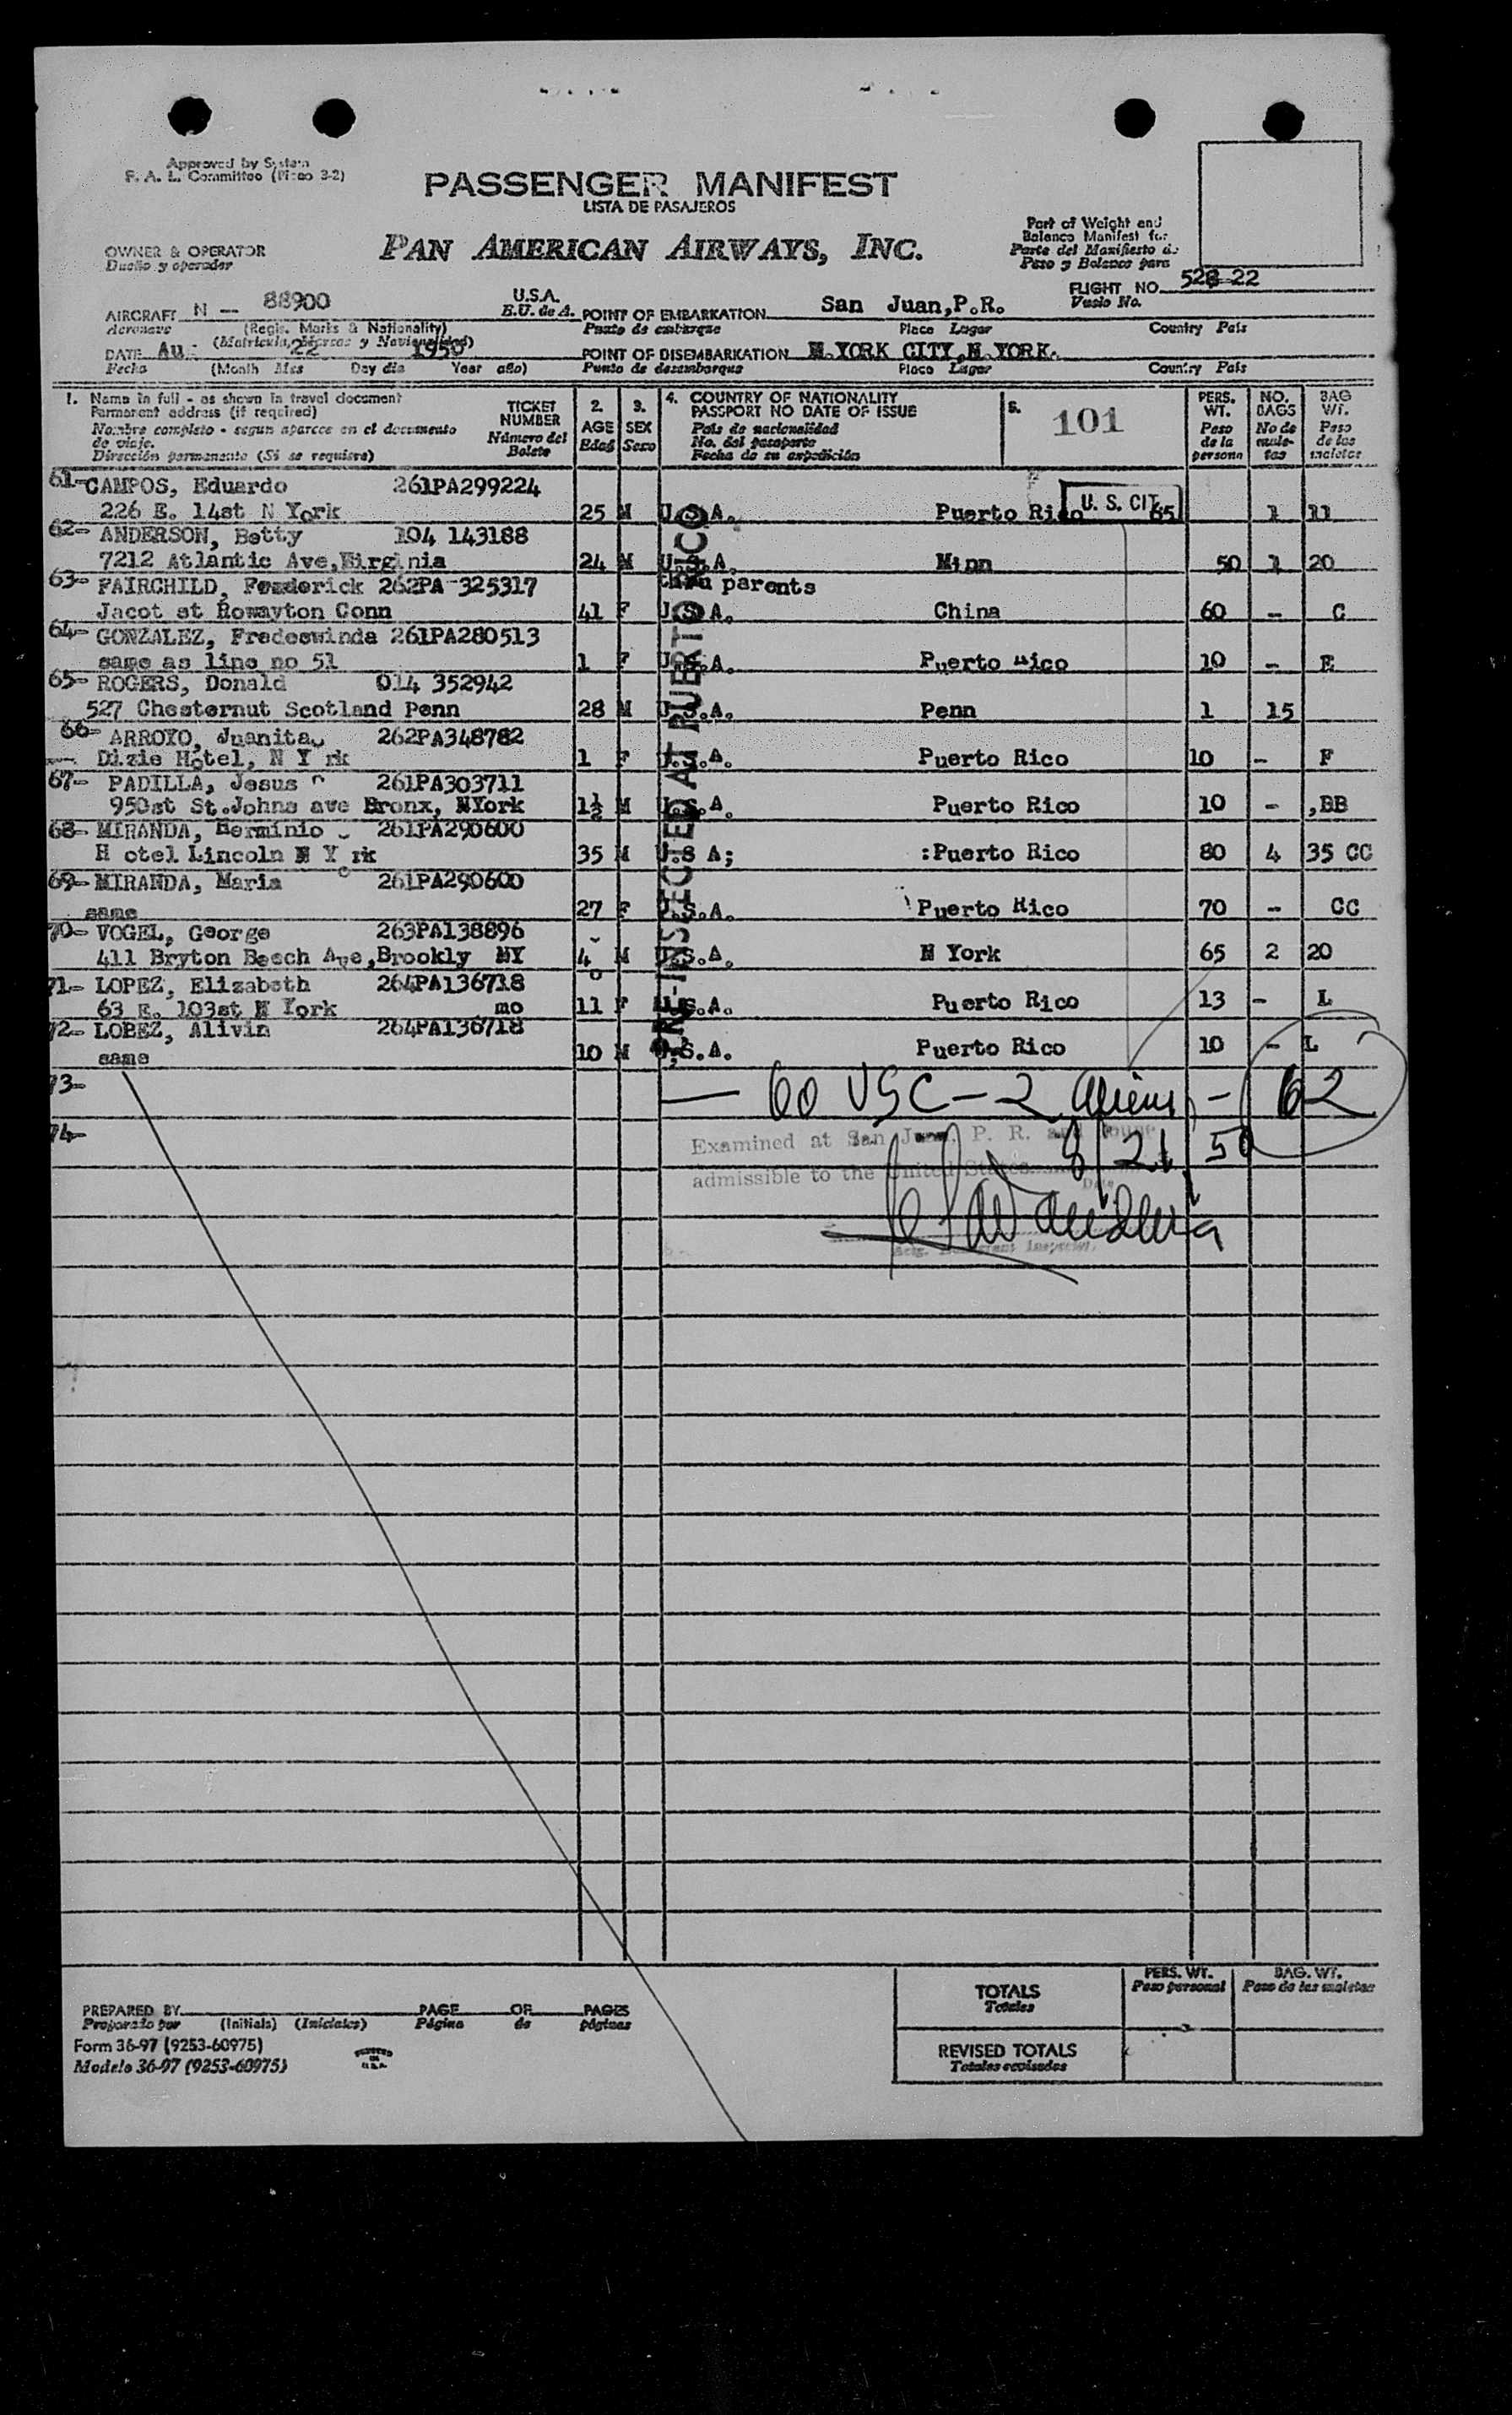 Approved by System
F. A. L. Committee (Picao 3-2)
PASSENGER MANIFEST
LISTA DE PASAJEROS
PAN AMERICAN AIRWAYS, INC.
OWNER & OPERATOR
Dueño y operador
Part of Weight and
Balance Manifest for
Parte del Manifiesto de
Peso y Balance para
FLIGHT NO. 528-22
Vuelo No.
AIRCRAFT N - 88900
Aeronave
(Regis. Marks & Nationality)
(Matricula, Marcas y Nacionalidad)
U.S.A.
E.U. de A.
POINT OF EMBARKATION San Juan,P.R.
Punto de embarque
Place Lugar
Country País
DATE Au 22 1950
Fecha (Month Mes Day dia Year año)
POINT OF DISEMBARKATION N.YORK CITY,N.YORK.
Punto de desembarque
Place Lugar
Country País
1. Name in full - as shown in travel document
Permanent address (if required)
Nombre completo - segun aparece en el documento
de viaje.
Dirección permanente (Si se requiere)
TICKET
NUMBER
Número del
Boleto
2.
AGE
Edad
3.
SEX
Sexo
4. COUNTRY OF NATIONALITY
PASSPORT NO DATE OF ISSUE
País de nacionalidad
No. del pasaporte
Fecha de su expedición
5.
101
PERS.
WT.
Peso
de la
persona
NO.
BAGS
No de
male-
tas
BAG
WT.
Peso
de las
maletas
61- CAMPOS, Eduardo 261PA299224
226 E. 14st N York 25 M U.S.A. Puerto Rico U. S. CIT. 65 1 11
62- ANDERSON, Betty 104 143188
7212 Atlantic Ave,Virginia 24 M U.S.A. Minn 50 1 20
63- FAIRCHILD, Frederick 262PA-325317 thru parents
Jacot st Rowayton Conn 41 F U.S.A. China 60 - C
64- GONZALEZ, Fredeswinda 261PA280513
same as line no 51 1 F U.S.A. Puerto Rico 10 - E
65- ROGERS, Donald 014 352942
527 Chesternut Scotland Penn 28 M U.S.A. Penn 1 15
66- ARROYO, Juanita 262PA348782
Dizie Hotel, N Y rk 1 F U.S.A. Puerto Rico 10 - F
67- PADILLA, Jesus 261PA303711
950st St.Johns ave Bronx, NYork 1½ M U.S.A. Puerto Rico 10 - ,BB
68- MIRANDA, Herminio 261PA290600
H otel Lincoln N Y rk 35 M U.S A; :Puerto Rico 80 4 35 CC
69- MIRANDA, Maria 261PA290600
same 27 F U.S.A. Puerto Rico 70 - CC
70- VOGEL, George 263PA138896
411 Bryton Beach Ave,Brookly NY 4 M U.S.A. N York 65 2 20
71- LOPEZ, Elizabeth 264PA136718
63 E. 103st N York mo 11 F U.S.A. Puerto Rico 13 - L
72- LOBEZ, Alivin 264PA136718
same 10 M U.S.A. Puerto Rico 10 - L
PRE-INSPECTED AT PUERTO RICO
73- — 60 USC - 2 Aliens - 62
74-
Examined at San Juan, P. R. and found
8/21/50
admissible to the United States
Date
Actg. Immigrant Inspector.
PREPARED BY
Preparado por (Initials) (Iniciales)
PAGE OF PAGES
Página de páginas
Form 36-97 (9253-60975)
Modelo 36-97 (9253-60975)
PRINTED
IN
U.S.A.
PERS. WT.
Peso personal
BAG. WT.
Peso de las maletas
TOTALS
Totales
REVISED TOTALS
Totales revisados